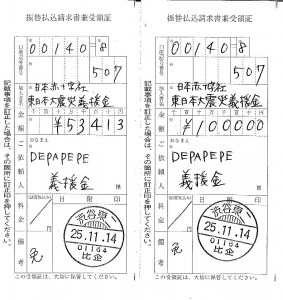 振替払込請求書兼受領証
00140-8
507
加入者名
日本赤十字社
東日本大震災義援金
金額
千百十万千百十円
¥53413
ご依頼人
おなまえ
DEPAPEPE
義援金
様
料金
日附印
備考
免
渋谷東二
25.11.14
01164
比企
この受領証は、大切に保管してください。
記載事項を訂正した場合は、その箇所に訂正印を押してください。
振替払込請求書兼受領証
00140-8
507
加入者名
日本赤十字社
東日本大震災義援金
金額
千百十万千百十円
¥100000
ご依頼人
おなまえ
DEPAPEPE
義援金
様
料金
日附印
備考
免
渋谷東二
25.11.14
01164
比企
この受領証は、大切に保管してください。
記載事項を訂正した場合は、その箇所に訂正印を押してください。